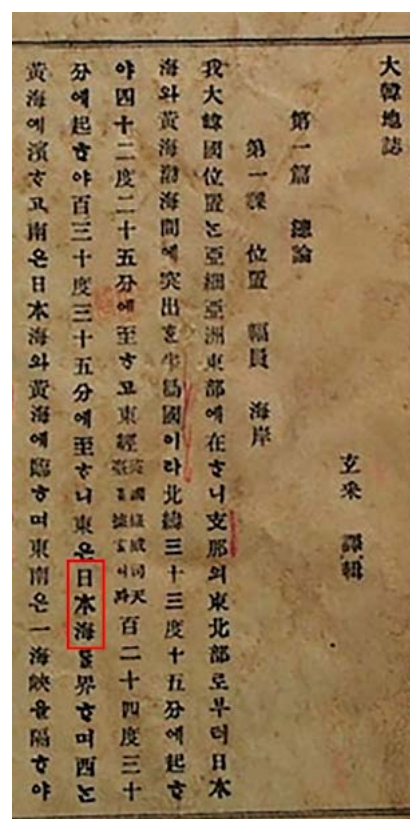 大韓地誌
玄采 譯輯
第一篇 總論
第一課 位置 幅員 海岸
我大韓國位置는亞細亞洲東部에在ᄒᆞ니支那의東北部로부터日本
海와黃海渤海間에突出ᄒᆞᆫ半島國이라北緯三十三度十五分에起ᄒᆞ
야四十二度二十五分에至ᄒᆞ고東經英國綠威司天臺를百二十四度三十
分에起ᄒᆞ야百三十度三十五分에至ᄒᆞ니東은日本海를界ᄒᆞ며西는
黃海에濱ᄒᆞ고南은日本海와黃海에臨ᄒᆞ며東南은一海峽을隔ᄒᆞ야